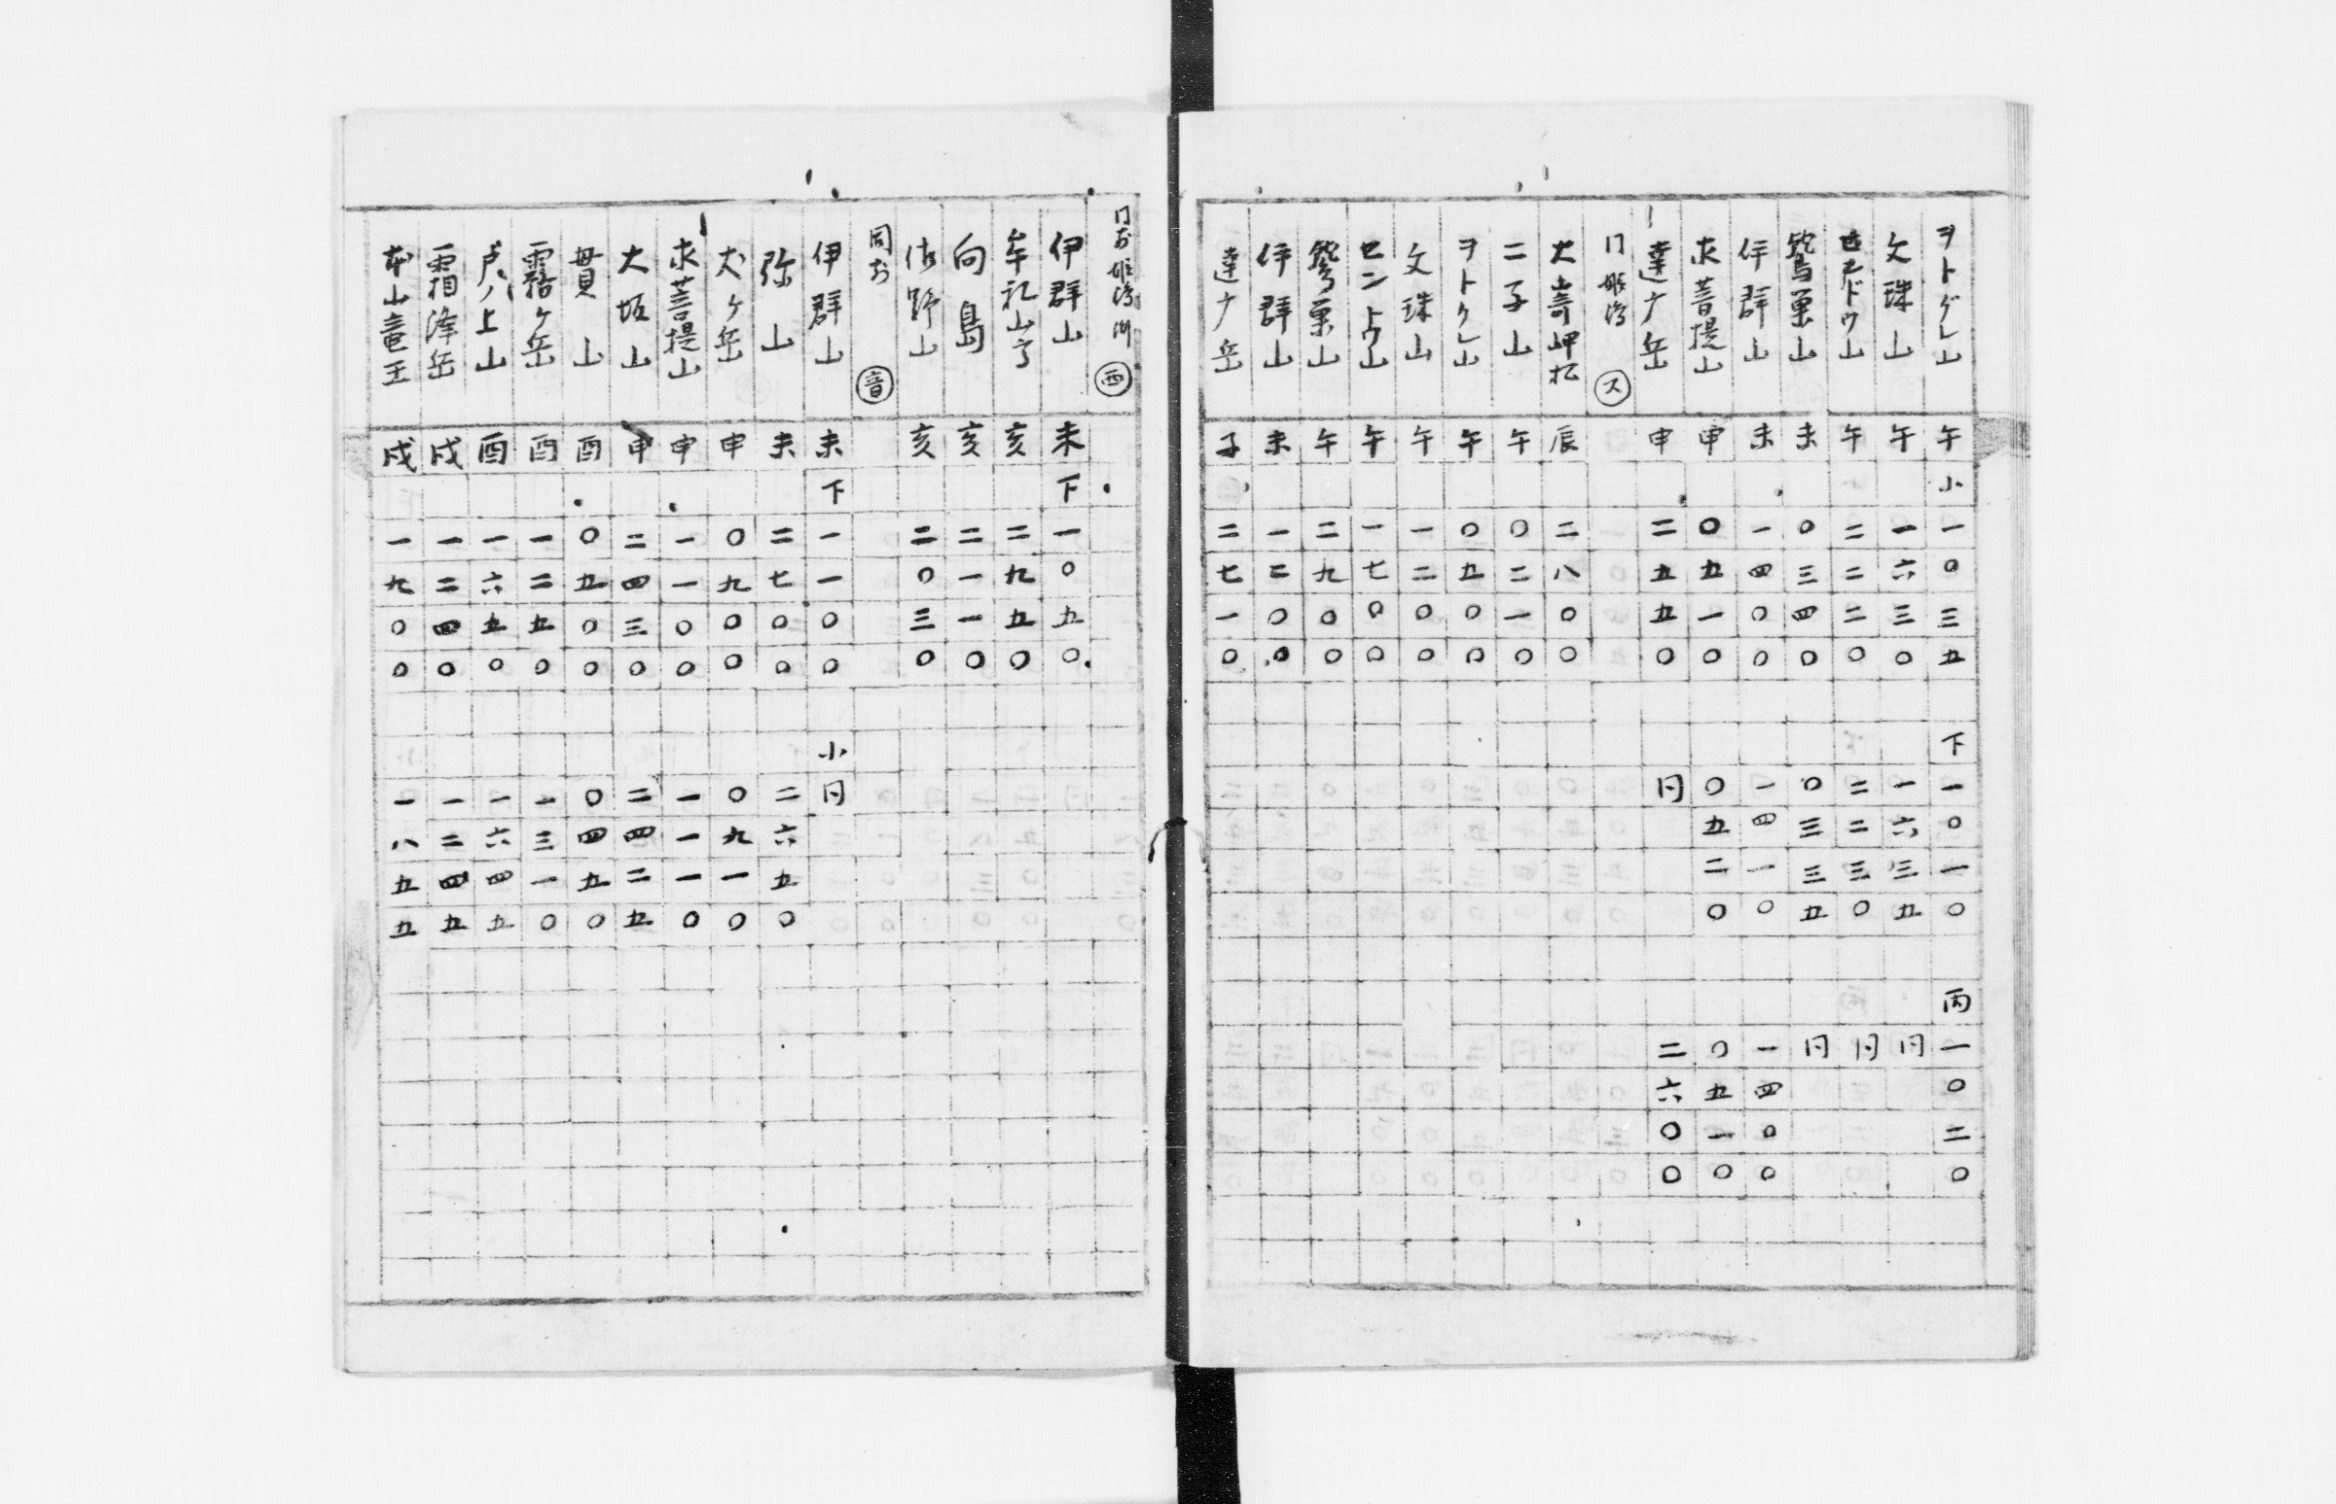 ヲトグレ山 午 小 一〇三五 下 一〇一〇 丙 一〇二〇
文珠山 午 一六三〇 一六三五 冂
セントウ山 午 二二二〇 二二三〇 冂
鷲巣山 未 〇三四〇 〇三三五 冂
伊群山 未 一四〇〇 一四一〇 一四〇〇
求菩提山 申 〇五一〇 〇五二〇 〇五一〇
達ナ岳 申 二五五〇 冂 二六〇〇
冂 姫嶋 ス
大嵜岬松 辰 二八〇〇
二子山 午 〇二一〇
ヲトクレ山 午 〇五〇〇
文珠山 午 一二〇〇
セントウ山 午 一七〇〇
鷲巣山 午 二九〇〇
伊群山 未 一二〇〇
達ナ岳 子 二七一〇
冂お姫嶋 西
伊群山 未 下 一〇五〇
牟礼山 亥 二九五〇
向島 亥 二一一〇
佐野山 亥 二〇三〇
同お 音
伊群山 未 下 一一〇〇 小 冂
弥山 未 二七〇〇 二六五〇
犬ヶ岳 申 〇九〇〇 〇九一〇
求菩提山 申 一一〇〇 一一一〇
大坂山 申 二四三〇 二四二五
貫山 酉 〇五〇〇 〇四五〇
霧ヶ岳 酉 一二五〇 一三一〇
戸ノ上山 酉 一六五〇 一六四五
霜降岳 戌 一二四〇 一二四五
本山竜王 戌 一九〇〇 一八五五